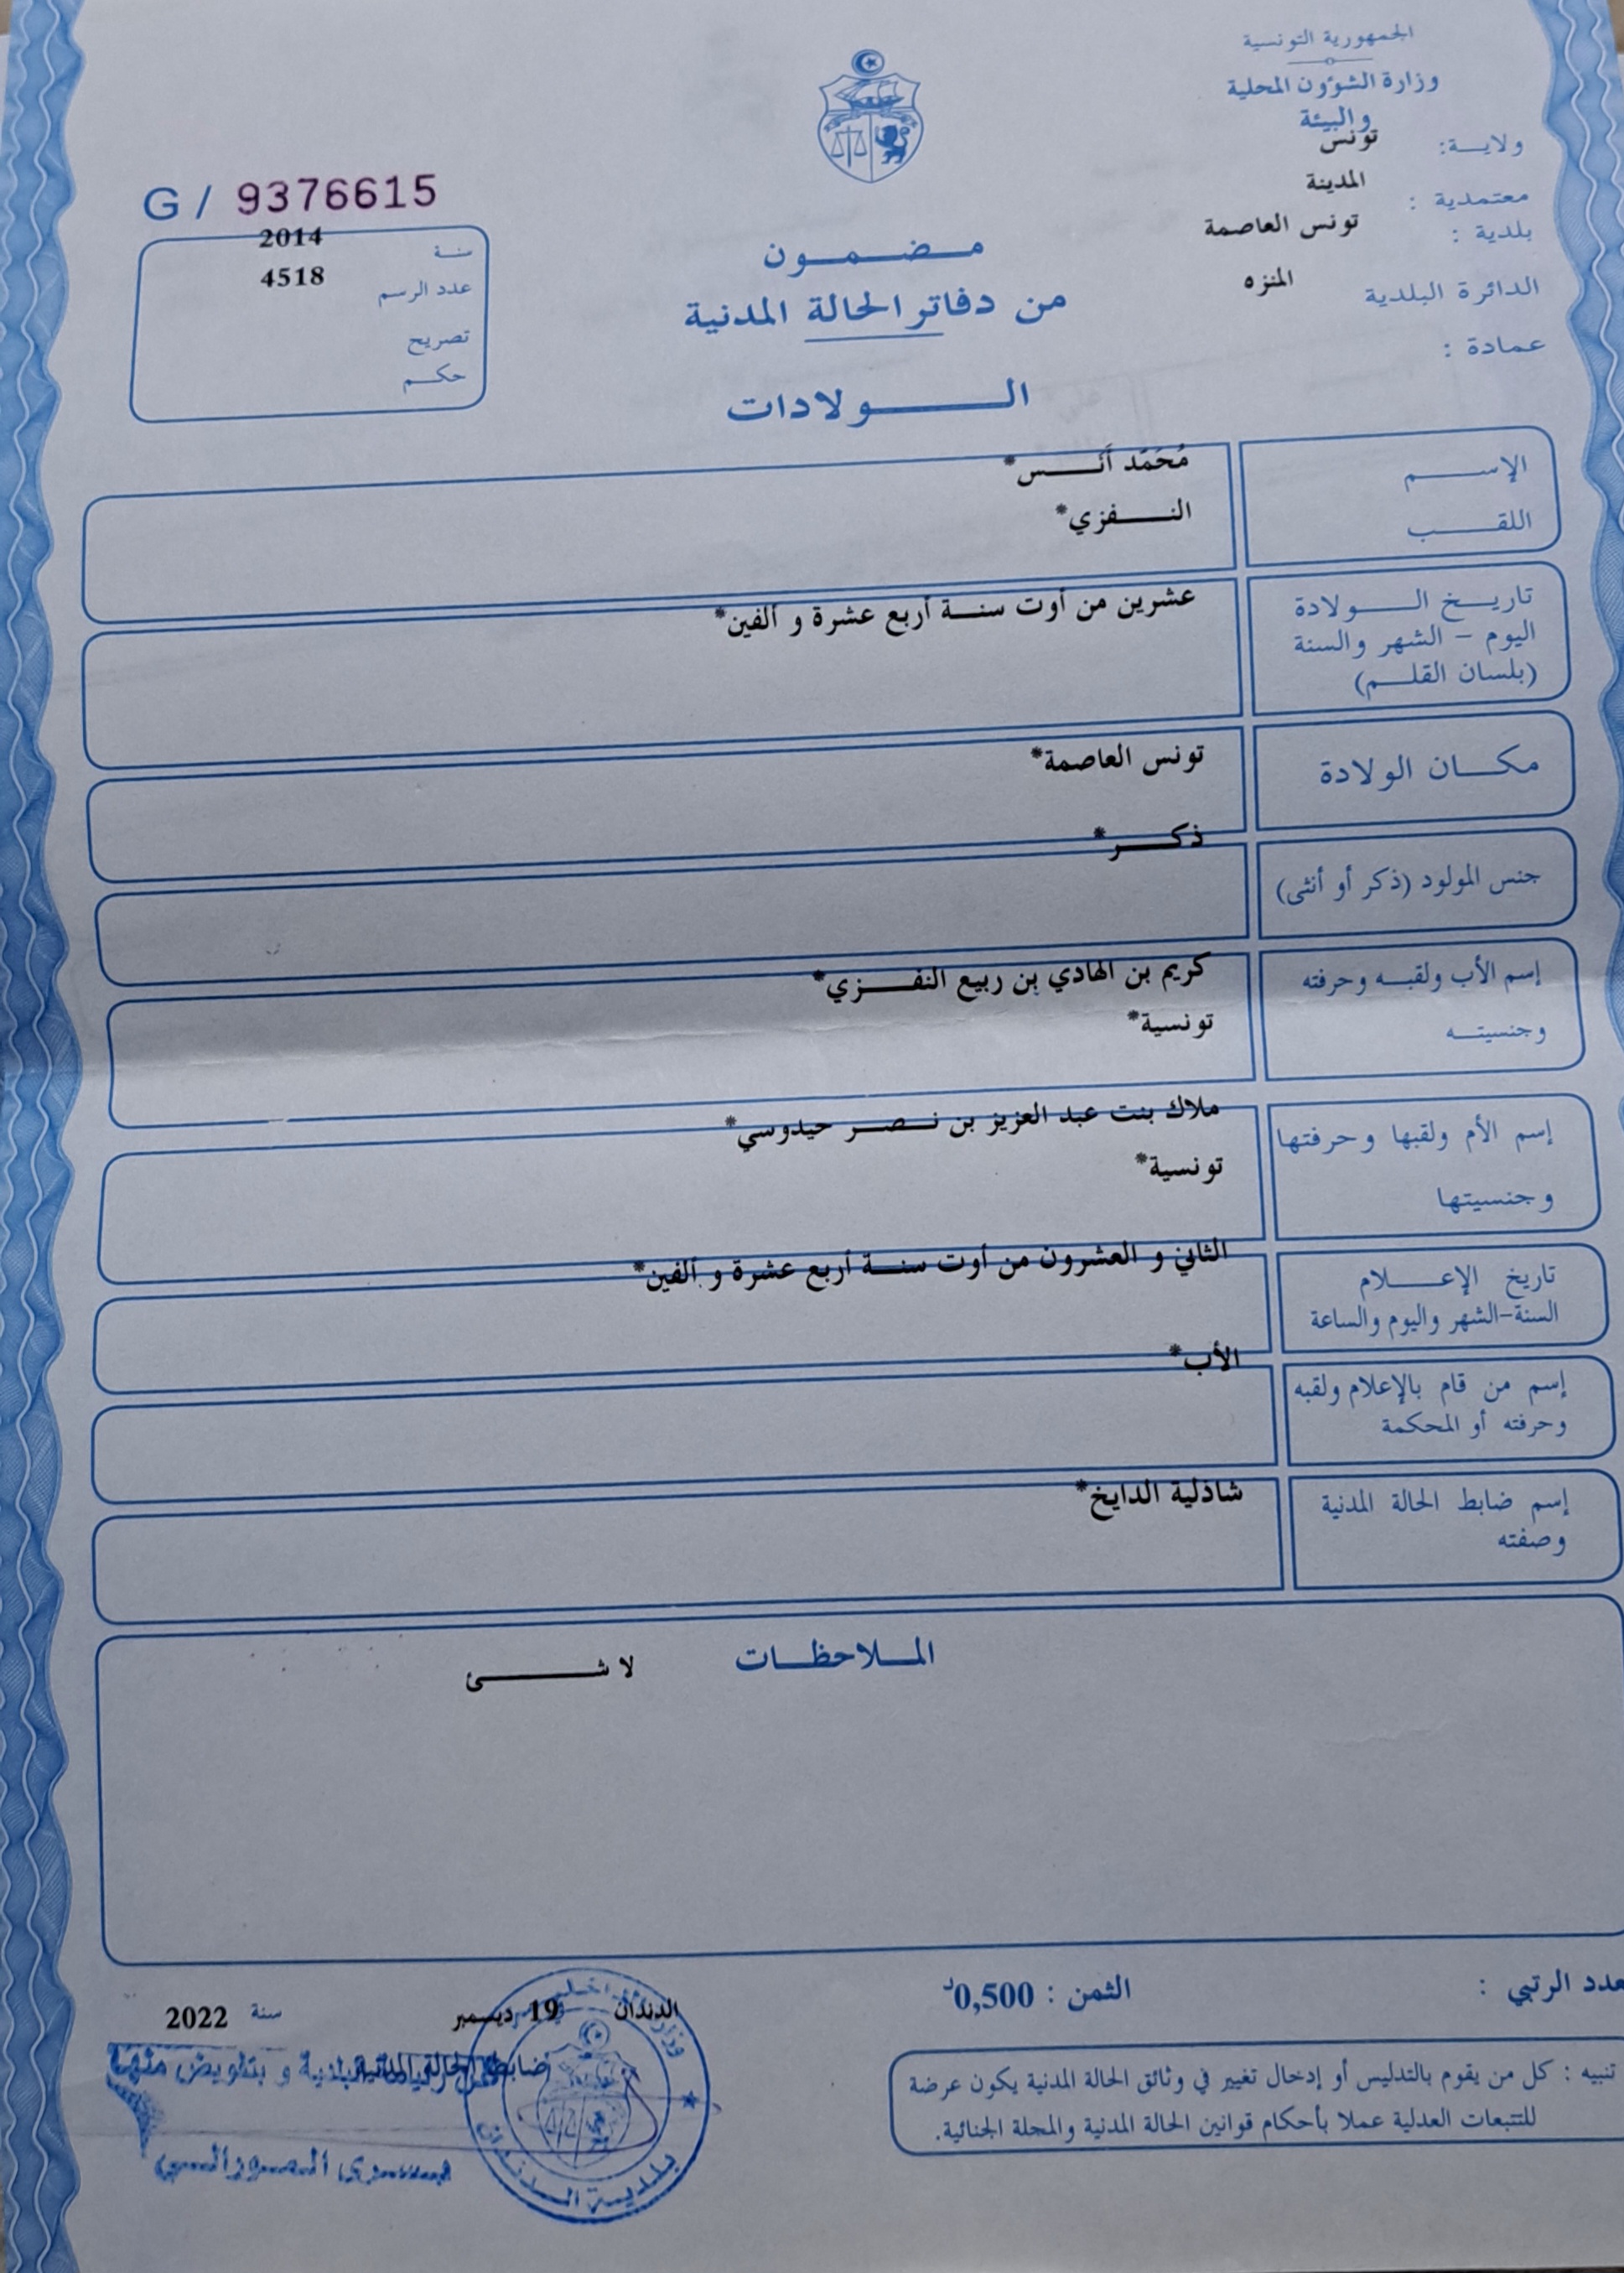 الجمهورية التونسية
وزارة الشؤون المحلية
والبيئة
ولايـــة: تونس
معتمدية : المدينة
بلدية : تونس العاصمة
الدائرة البلدية المنزه
عمادة :
G / 9376615
سنة 2014
عدد الرسم 4518
تصريح
حكم
مضمون
من دفاتر الحالة المدنية
الولادات
الإسم مُحَمّد أنس*
اللقب النفزي*
تاريخ الولادة عشرين من أوت سنة أربع عشرة و ألفين*
اليوم – الشهر والسنة
(بلسان القلم)
مكان الولادة تونس العاصمة*
جنس المولود (ذكر أو أنثى) ذكر*
إسم الأب ولقبه وحرفته كريم بن الهادي بن ربيع النفزي*
وجنسيته تونسية*
إسم الأم ولقبها وحرفتها ملاك بنت عبد العزيز بن نصر حيدوسي*
وجنسيتها تونسية*
تاريخ الإعلام الثاني و العشرون من أوت سنة أربع عشرة و ألفين*
السنة-الشهر واليوم والساعة
إسم من قام بالإعلام ولقبه الأب*
وحرفته أو المحكمة
إسم ضابط الحالة المدنية شاذلية الدايخ*
وصفته
الملاحظات لا شئ
عدد الرتبي :
الثمن : 0,500د
الدندان 19 ديسمبر سنة 2022
ضابط الحالة المدنية
و بتفويض منها
بلدية الدندان
تنبيه : كل من يقوم بالتدليس أو إدخال تغيير في وثائق الحالة المدنية يكون عرضة
للتتبعات العدلية عملا بأحكام قوانين الحالة المدنية والمجلة الجنائية.